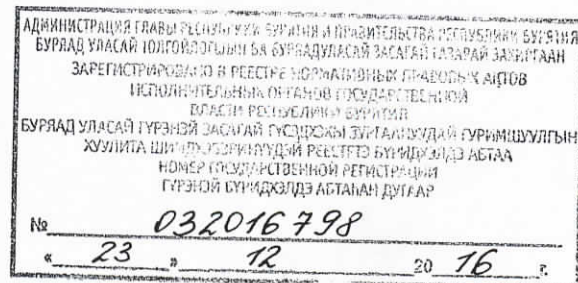 АДМИНИСТРАЦИЯ ГЛАВЫ РЕСПУБЛИКИ БУРЯТИЯ И ПРАВИТЕЛЬСТВА РЕСПУБЛИКИ БУРЯТИЯ
БУРЯАД УЛАСАЙ ЗАСАГАЙ ГАЗАРАЙ ЗАХИРГААН
ЗАРЕГИСТРИРОВАНО В РЕЕСТРЕ НОРМАТИВНЫХ ПРАВОВЫХ АКТОВ
ИСПОЛНИТЕЛЬНЫХ ОРГАНОВ ГОСУДАРСТВЕННОЙ
ВЛАСТИ РЕСПУБЛИКИ БУРЯТИЯ
БУРЯАД УЛАСАЙ ГҮРЭНЭЙ ЗАСАГАЙ ГҮРИМШУУЛГЫН
ХУУЛИТА РЕЕСТРТЭ БҮРИДХЭЛДЭ АБТАА
НОМЕР ГОСУДАРСТВЕННОЙ РЕГИСТРАЦИИ
ГҮРЭНЭЙ БҮРИДХЭЛДЭ АБТАҺАН ДУГААР
№ 032016798
« 23 » 12 20 16 г.